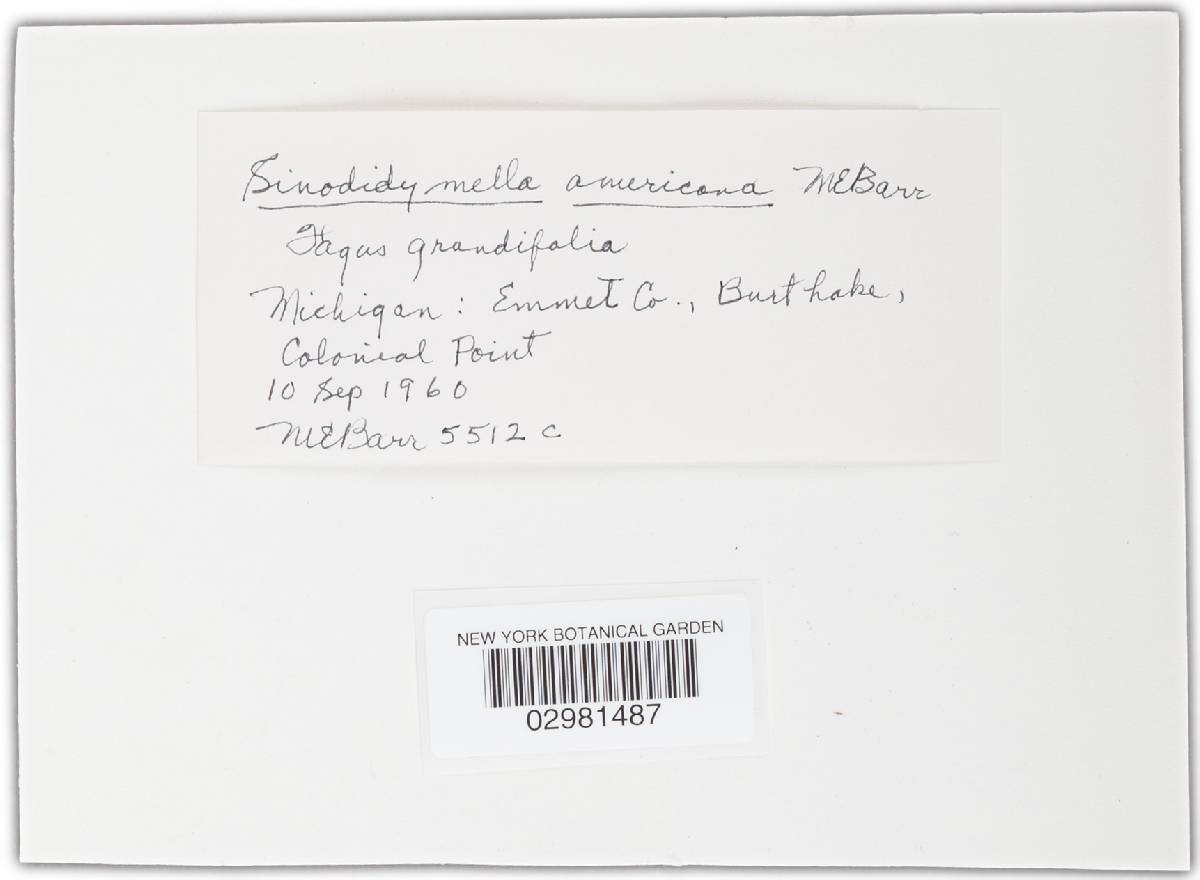 Sinodidymella americana MEBarr
Fagus grandifolia
Michigan: Emmet Co., Burt Lake,
Colonial Point
10 Sep 1960
MEBarr 5512 c
NEW YORK BOTANICAL GARDEN
02981487